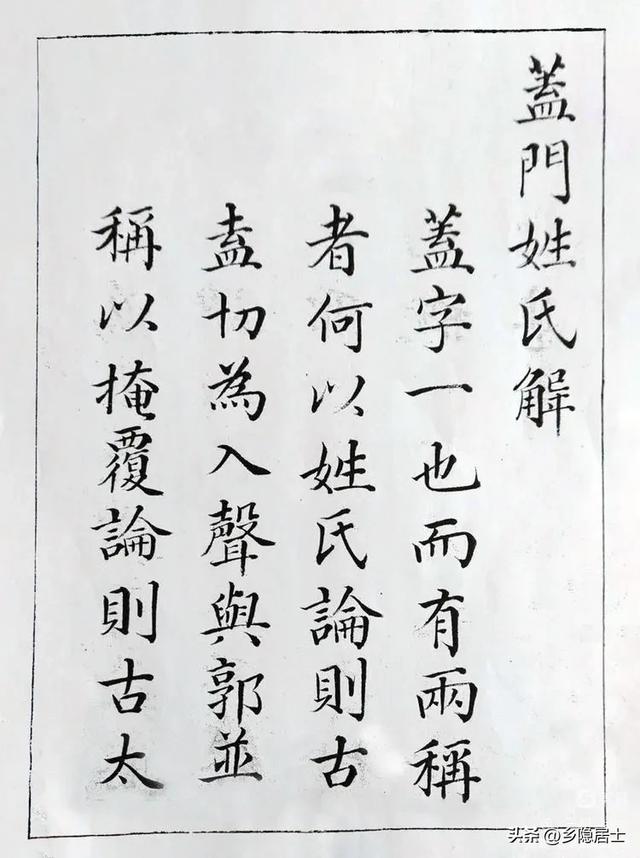 蓋門姓氏解
蓋字一也而有兩稱
者何以姓氏論則古
盍切為入聲與郭並
稱以掩覆論則古太
头条 @乡隐居士